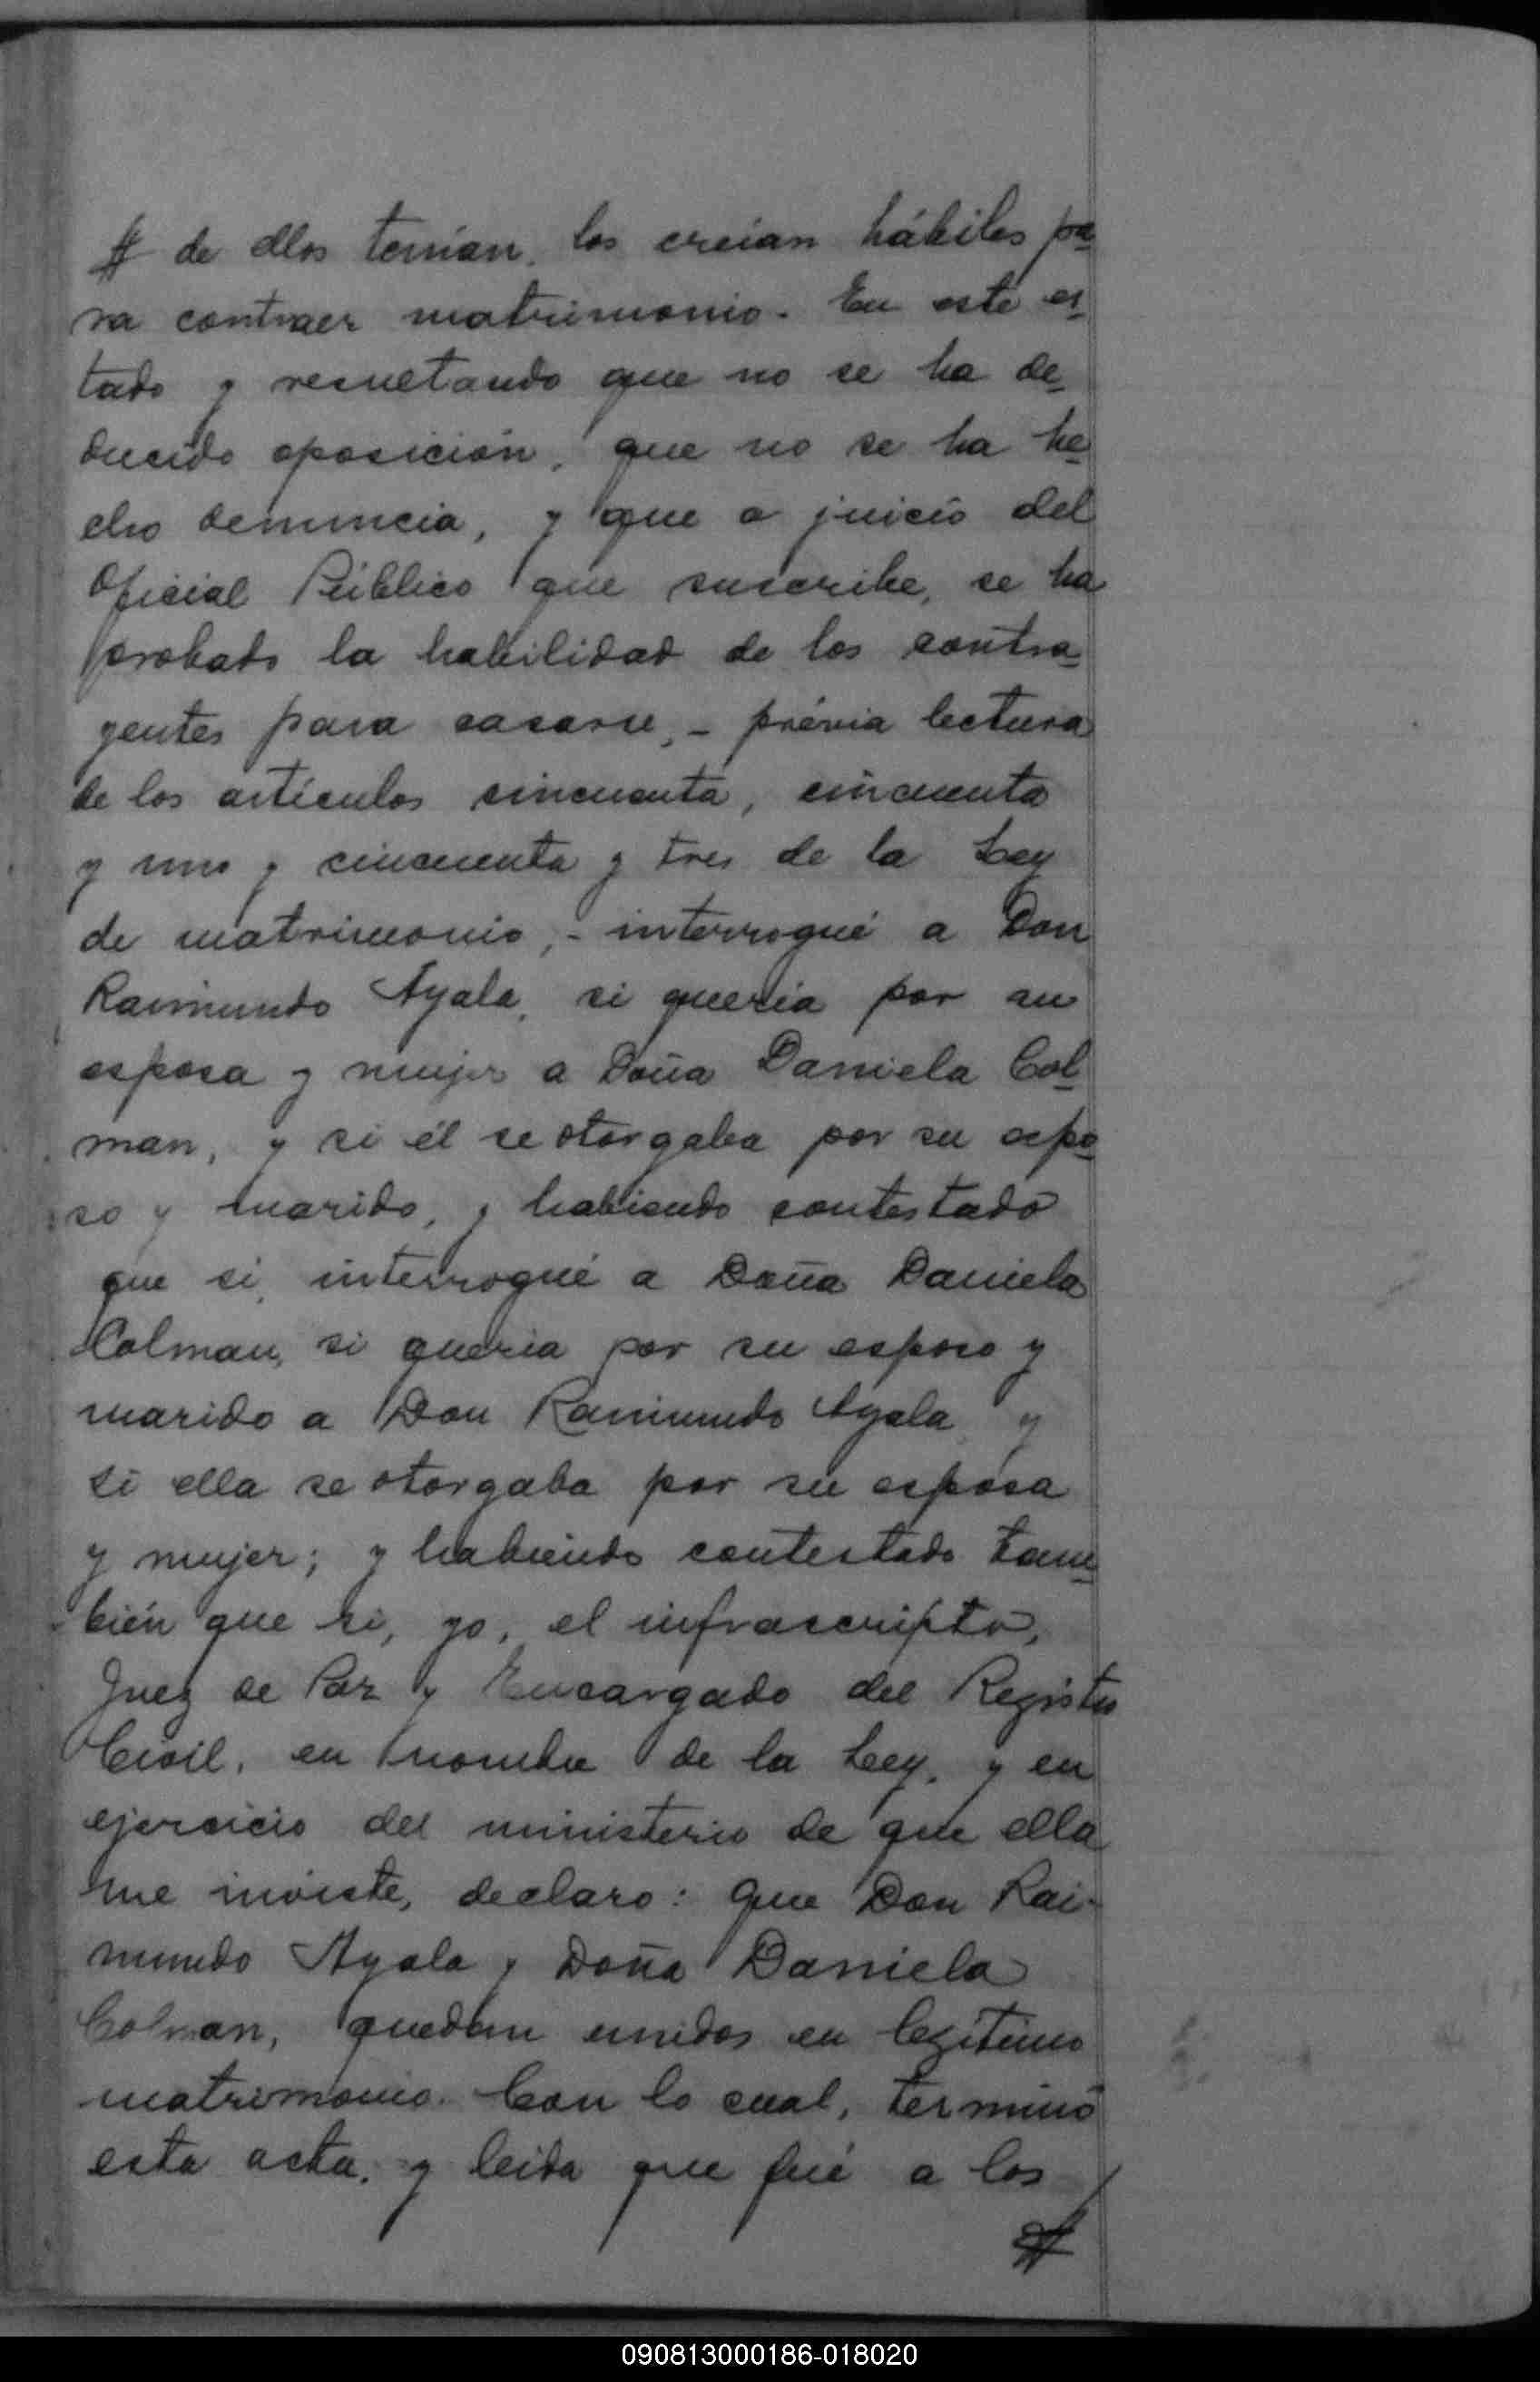 # de ellos tenían, los creían hábiles pa-
ra contraer matrimonio. En este es-
tado y resultando que no se ha de-
ducido oposición, que no se ha he-
cho denuncia, y que a juicio del
Oficial Público que suscribe, se ha
probado la habilidad de los contra-
yentes para casarse, - prévia lectura
de los artículos cincuenta, cincuenta
y uno y cincuenta y tres de la Ley
de matrimonio, - interrogué a Don
Raimundo Ayala, si quería por su
esposa y mujer a Doña Daniela Col-
man, y si él se otorgaba por su espo-
so y marido, y habiendo contestado
que si, interrogué a Doña Daniela
Colman, si quería por su esposo y
marido a Don Raimundo Ayala y
si ella se otorgaba por su esposa
y mujer; y habiendo contestado tam-
bién que si, yo, el infrascripto,
Juez de Paz y Encargado del Registro
Civil, en nombre de la Ley, y en
ejercicio del ministerio de que ella
me inviste, declaro: que Don Rai-
mundo Ayala y Doña Daniela
Colman, quedan unidos en legítimo
matrimonio. Con lo cual, terminó
esta acta, y leida que fué a los /
#
090813000186-018020